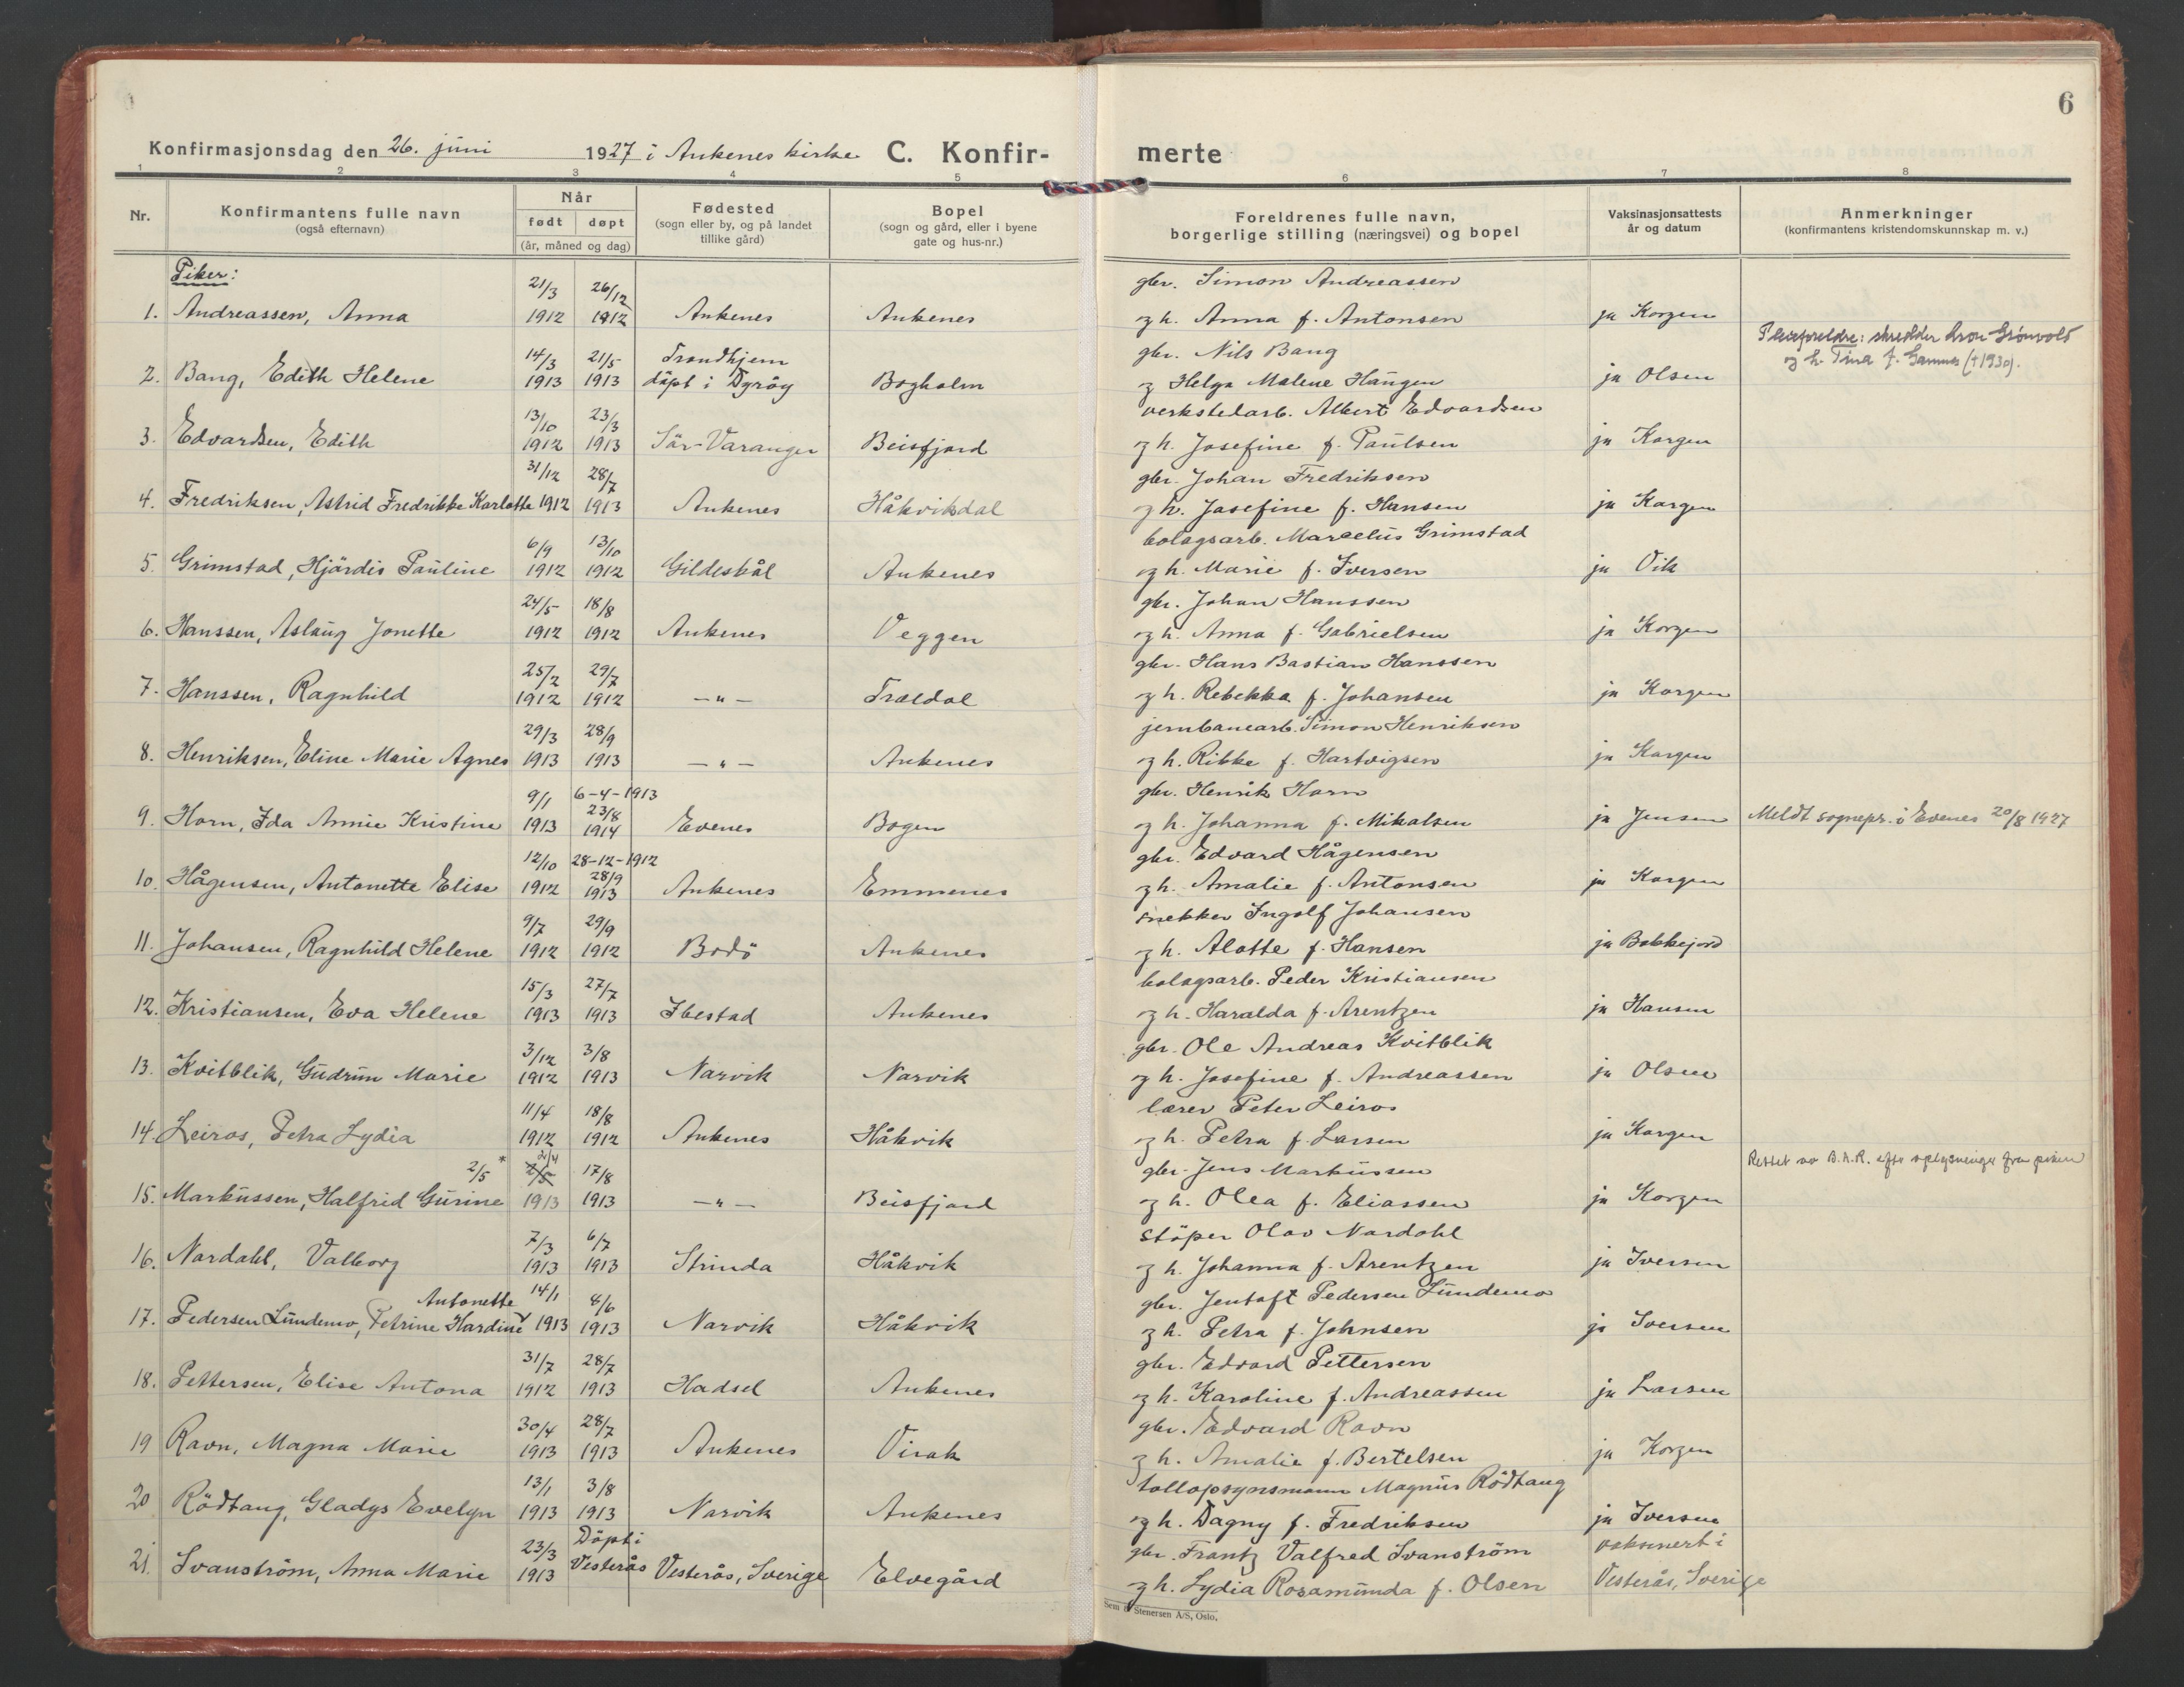 6
Konfirmasjonsdag den 26. juni 1927 i Ankenes kirke C. Konfir- merte
1 2 3 4 5 6 7 8
Nr. Konfirmantens fulle navn (også efternavn) Når født døpt (år, måned og dag) Fødested (sogn eller by, og på landet tillike gård) Bopel (sogn og gård, eller i byene gate og hus-nr.) Foreldrenes fulle navn, borgerlige stilling (næringsvei) og bopel Vaksinasjonsattests år og datum Anmerkninger (konfirmantens kristendomskunnskap m. v.)
Piker:
21/3 26/12 gbr. Simon Andreassen
1. Andreassen, Anna 1912 1912 Ankenes Ankenes og h. Anna f. Antonsen ja Korgen
Pleieforeldre: skredder Aron Grönvold
14/3 21/5 Trondhjem gbr. Nils Bang og h. Tina f. (†1930).
2. Bang, Edith Helene 1913 1913 döpt i Dyröy Bogholm og Helga Malene Haugen ja Olsen
13/10 23/3 verkstedarb. Albert Edvardsen
3. Edvardsen, Edith 1912 1913 Sör-Varanger Beisfjord og h. Josefine f. Paulsen ja Korgen
31/12 28/7 gbr. Johan Fredriksen
4. Fredriksen, Astrid Fredrikke Karlotte 1912 1913 Ankenes Håkvikdal og h. Josefine f. Hansen ja Korgen
6/9 13/10 bolagsarb. Marcelius Grimstad
5. Grimstad, Hjördis Pauline 1912 1912 Gildeskål Ankenes og h. Marie f. Iversen ja Vik
24/5 18/8 gbr. Johan Hanssen
6. Hanssen, Aslaug Jonette 1912 1912 Ankenes Veggen og h. Anna f. Gabrielsen ja Korgen
25/2 29/7 gbr. Hans Bastian Hanssen
7. Hanssen, Ragnhild 1912 1912 —"— Trældal og h. Rebekka f. Johansen ja Korgen
29/3 28/9 jernbanearb. Simon Henriksen
8. Henriksen, Eline Marie Agnes 1913 1913 —"— Ankenes og h. Rikke f. Hartvigsen ja Korgen
9/1 6-4-1913 23/8 gbr. Henrik Horn
9. Horn, Ida Annie Kristine 1913 1914 Evenes Bogen og h. Johanna f. Mikalsen ja Jensen Meldt sognepr. i Evenes 20/8 1927
12/10 28-12-1912 28/9 gbr. Edvard Hågensen
10. Hågensen, Antonette Elise 1912 1913 Ankenes Emmenes og h. Amalie f. Antonsen ja Korgen
9/7 29/9 snekker Ingolf Johansen
11. Johansen, Ragnhild Helene 1912 1912 Bodö Ankenes og h. Alotte f. Hansen ja Bakkejord
15/3 27/7 bolagsarb. Peder Kristiansen
12. Kristiansen, Eva Helene 1913 1913 Ibestad Ankenes og h. Haralda f. Arentzen ja Hansen
3/12 3/8 gbr. Ole Andreas Kvitblik
13. Kvitblik, Gudrun Marie 1912 1913 Narvik Narvik og h. Josefine f. Andreassen ja Olsen
11/4 18/8 lærer Peter Leiros
14. Leiros, Petra Lydia 1912 1912 Ankenes Håkvik og h. Petra f. Larsen ja Korgen
2/5 * 2/5 21/4 17/8 gbr. Jens Markussen Rettet av B.A.R. efter oplysninger fra piken
15. Markussen, Halfrid Gurine 1913 1913 —"— Beisfjord og h. Olea f. Eliassen ja Korgen
7/3 6/7 stöper Olav Nardahl
16. Nardahl, Valborg 1913 1913 Strinda Håkvik og h. Johanna f. Arentzen ja Iversen
Antonette 14/1 8/6 gbr. Jentoft Pedersen Lundemo
17. Pedersen Lundemo, Petrine Hardine 1913 1913 Narvik Håkvik og h. Petra f. Johnsen ja Iversen
31/7 28/7 gbr. Edvard Pettersen
18. Pettersen, Elise Antona 1912 1913 Hadsel Ankenes og h. Karoline f. Andreassen ja Larsen
30/4 28/7 gbr. Edvard Ravn
19 Ravn, Magna Marie 1913 1913 Ankenes Virak og h. Amalie f. Bertelsen ja Korgen
13/1 3/8 tollopsynsmann Magnus Rödtang
20 Rödtang, Gladys Evelyn 1913 1913 Narvik Ankenes og h. Dagny f. Fredriksen ja Iversen
23/3 Döpt i gbr. Frantz Valfred Svanström vaksinert i
21. Svanström, Anna Marie 1913 Vesterås Vesterås, Sverige Elvegård og h. Lydia Rosamunda f. Olsen Vesterås, Sverige
Sem & Stenersen A/S, Oslo.